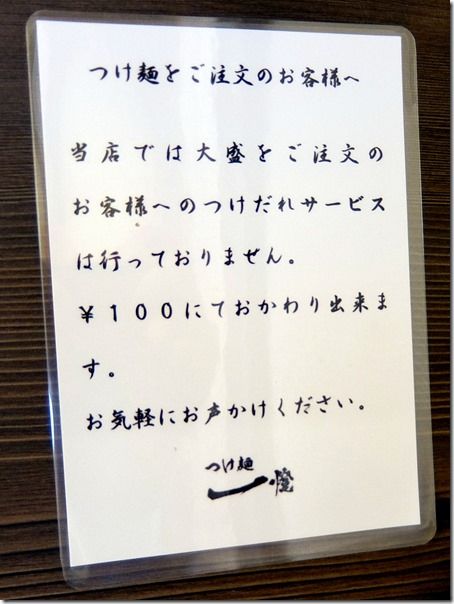 つけ麺をご注文のお客様へ
当店では大盛をご注文の
お客様へのつけだれサービス
は行っておりません。
￥１００にておかわり出来ま
す。
お気軽にお声かけください。
つけ麺
一燈